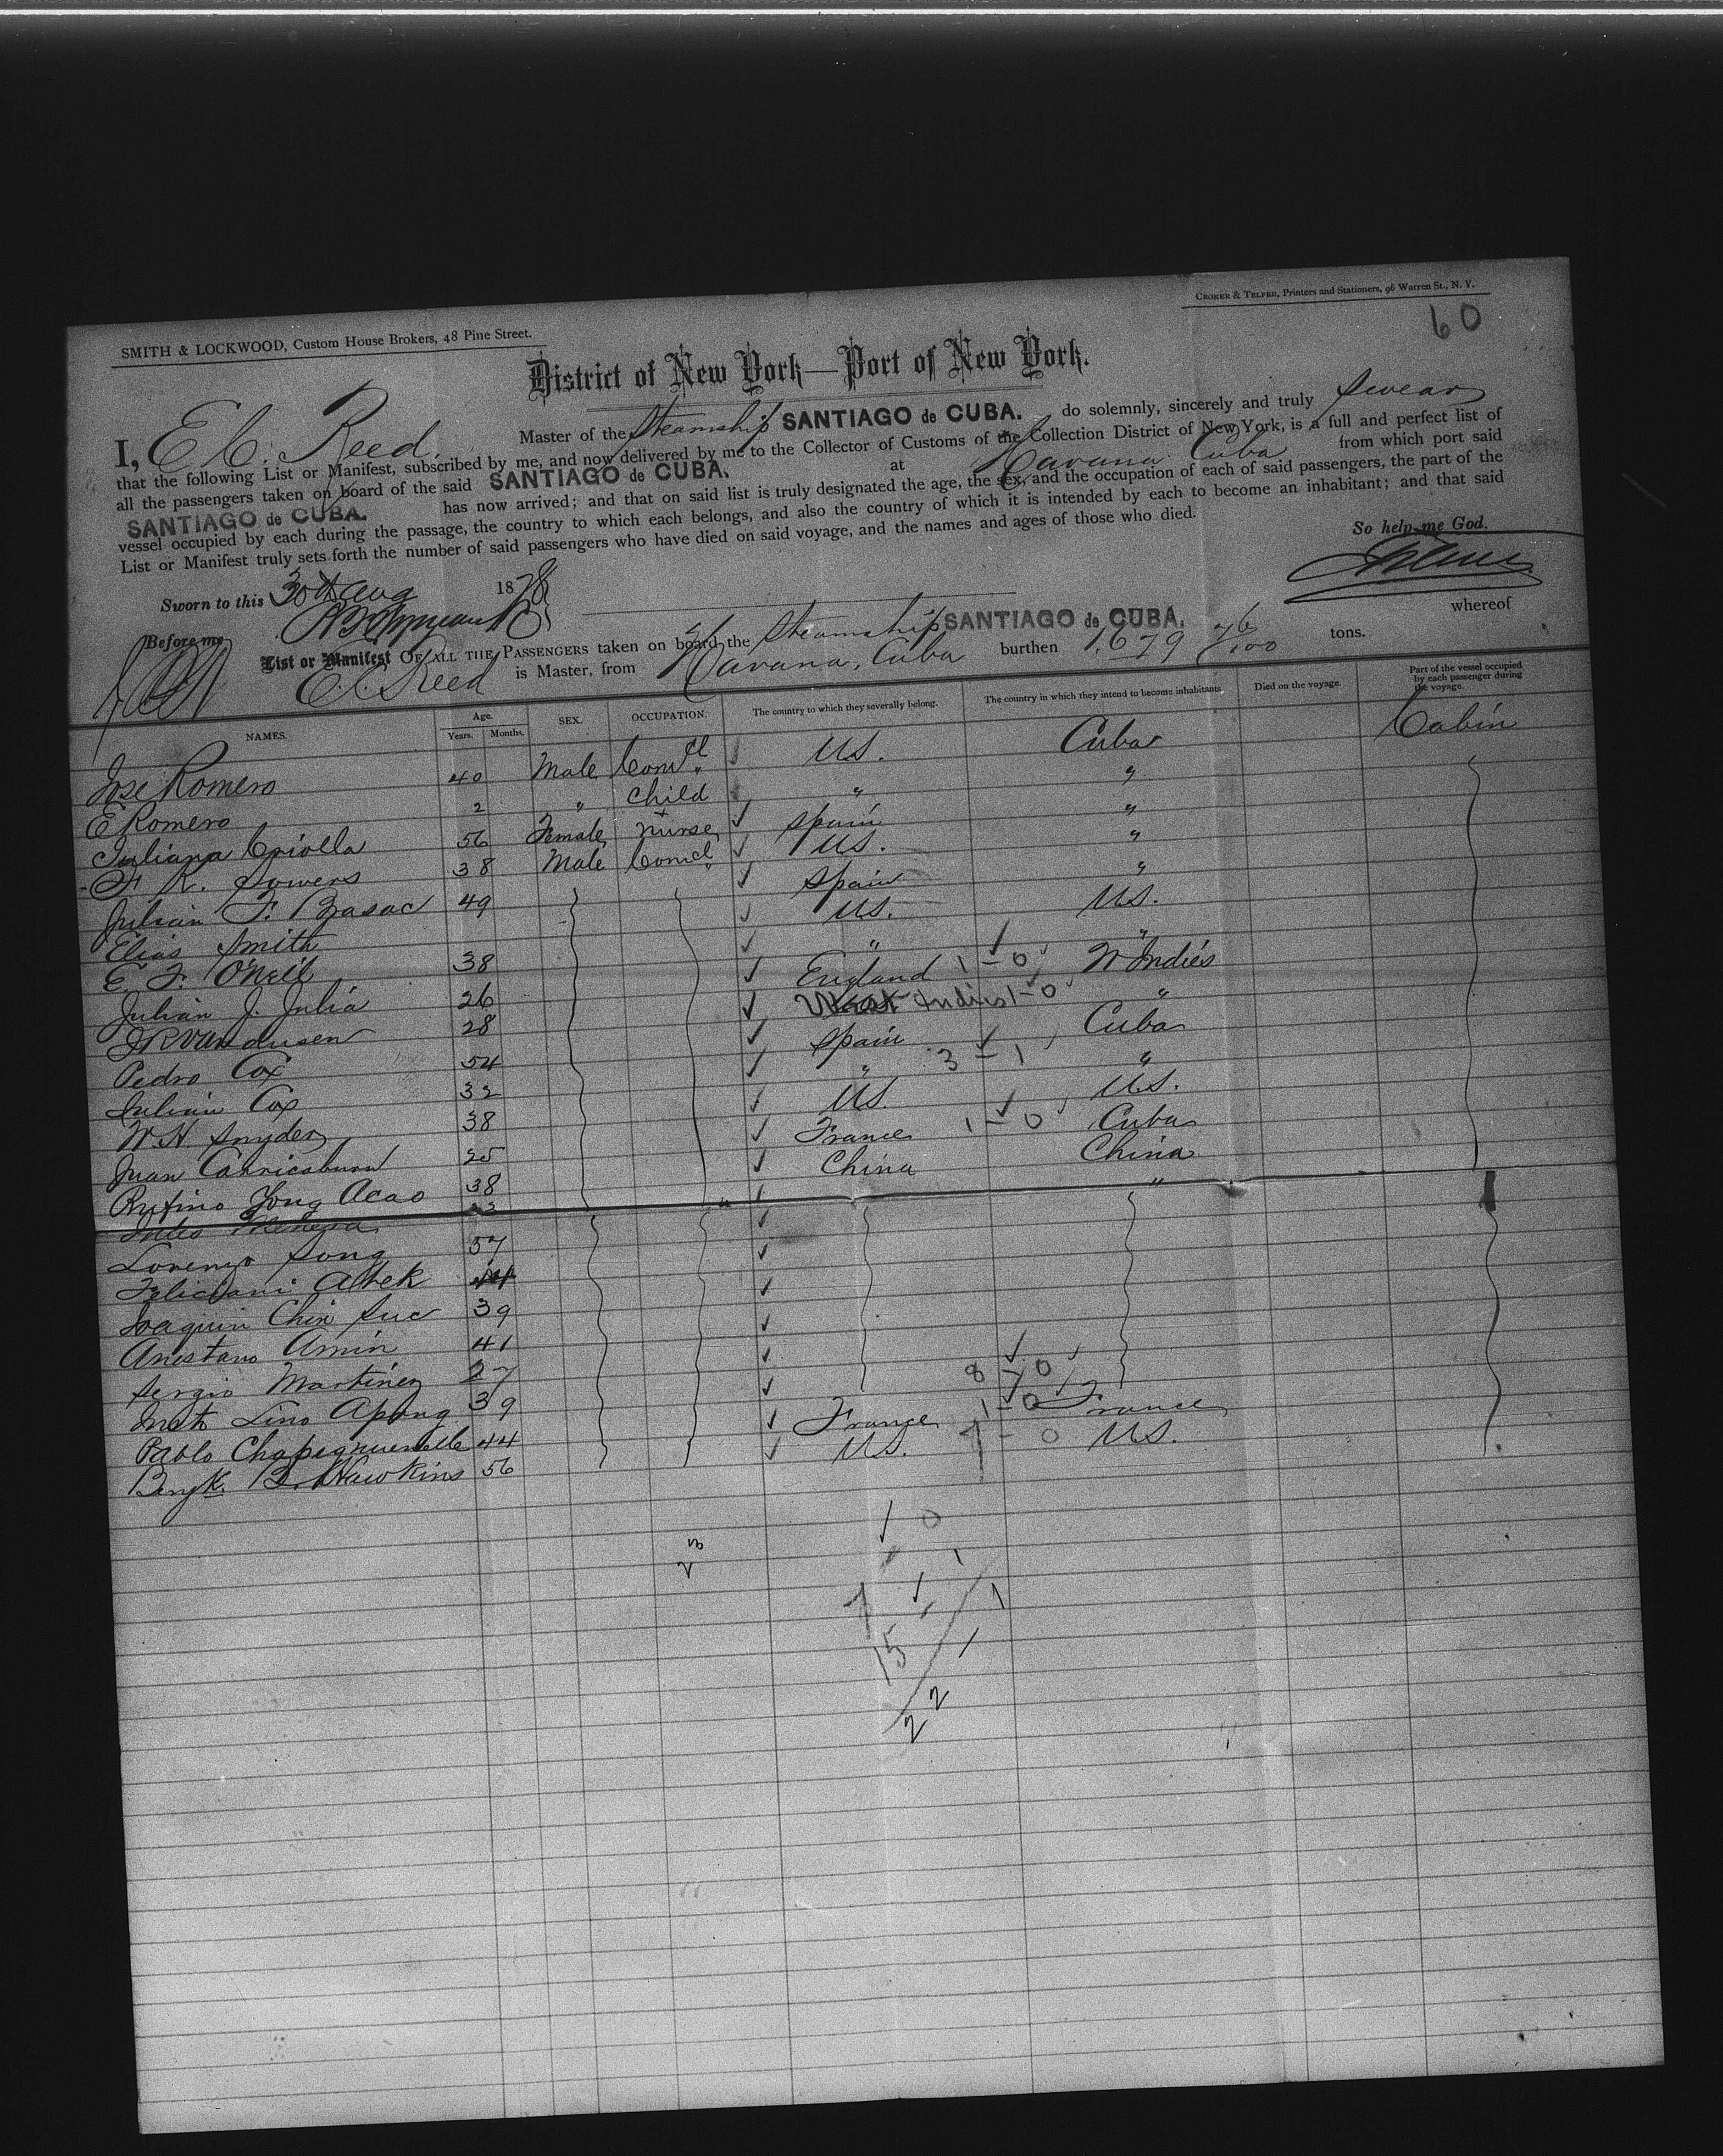 CROKER & TELFER, Printers and Stationers, 96 Warren St., N. Y.
60
SMITH & LOCKWOOD, Custom House Brokers, 48 Pine Street.
District of New York—Port of New York.
I, E C. Reed. Master of the Steamship SANTIAGO de CUBA. do solemnly, sincerely and truly swear
that the following List or Manifest, subscribed by me, and now delivered by me to the Collector of Customs of the Collection District of New York, is a full and perfect list of
all the passengers taken on board of the said SANTIAGO de CUBA. at Havana Cuba from which port said
SANTIAGO de CUBA. has now arrived; and that on said list is truly designated the age, the sex, and the occupation of each of said passengers, the part of the
vessel occupied by each during the passage, the country to which each belongs, and also the country of which it is intended by each to become an inhabitant; and that said
List or Manifest truly sets forth the number of said passengers who have died on said voyage, and the names and ages of those who died.
So help me God.
Sworn to this 30th Aug 1878
Before me
List or Manifest OF ALL THE PASSENGERS taken on board the Steamship SANTIAGO de CUBA. whereof
E. C. Reed is Master, from Havana, Cuba burthen 1.679 76/100 tons.
NAMES. Age. Years. Months. SEX. OCCUPATION. The country to which they severally belong. The country in which they intend to become inhabitants. Died on the voyage. Part of the vessel occupied by each passenger during the voyage.
Jose Romero 40 Male Comcl US. Cuba Cabin
E Romero 2 " Child " "
Juliana Criolla 56 Female Nurse Spain "
F. R. Sowers 38 Male Comcl US. "
Julian F. Basac 49 Spain "
Elias Smith US. US.
E. F. O'Neil 38 " "
Julian J. Julia 26 England 1-0 W Indies
J R Vandusen 28 West Indies 1-0 "
Pedro Cox 54 Spain Cuba
Julian Cox 32 " 3-1 "
W. H. Snyder 38 US. US.
Juan Carricaburu 25 France 1-0 Cuba
Rufino Yong Acao 38 China China
23 "
Lorenzo Song 37
Feliciani Ahek
Joaquin Chin Suc 39
Anestano Amin 41
Sergio Martinez 27
Lino Apong 39 8 0
Pablo 44 France 1-0 France
Benjk. B. Hawkins 56 US. 1-0 US.
1 0
23
1
15
22